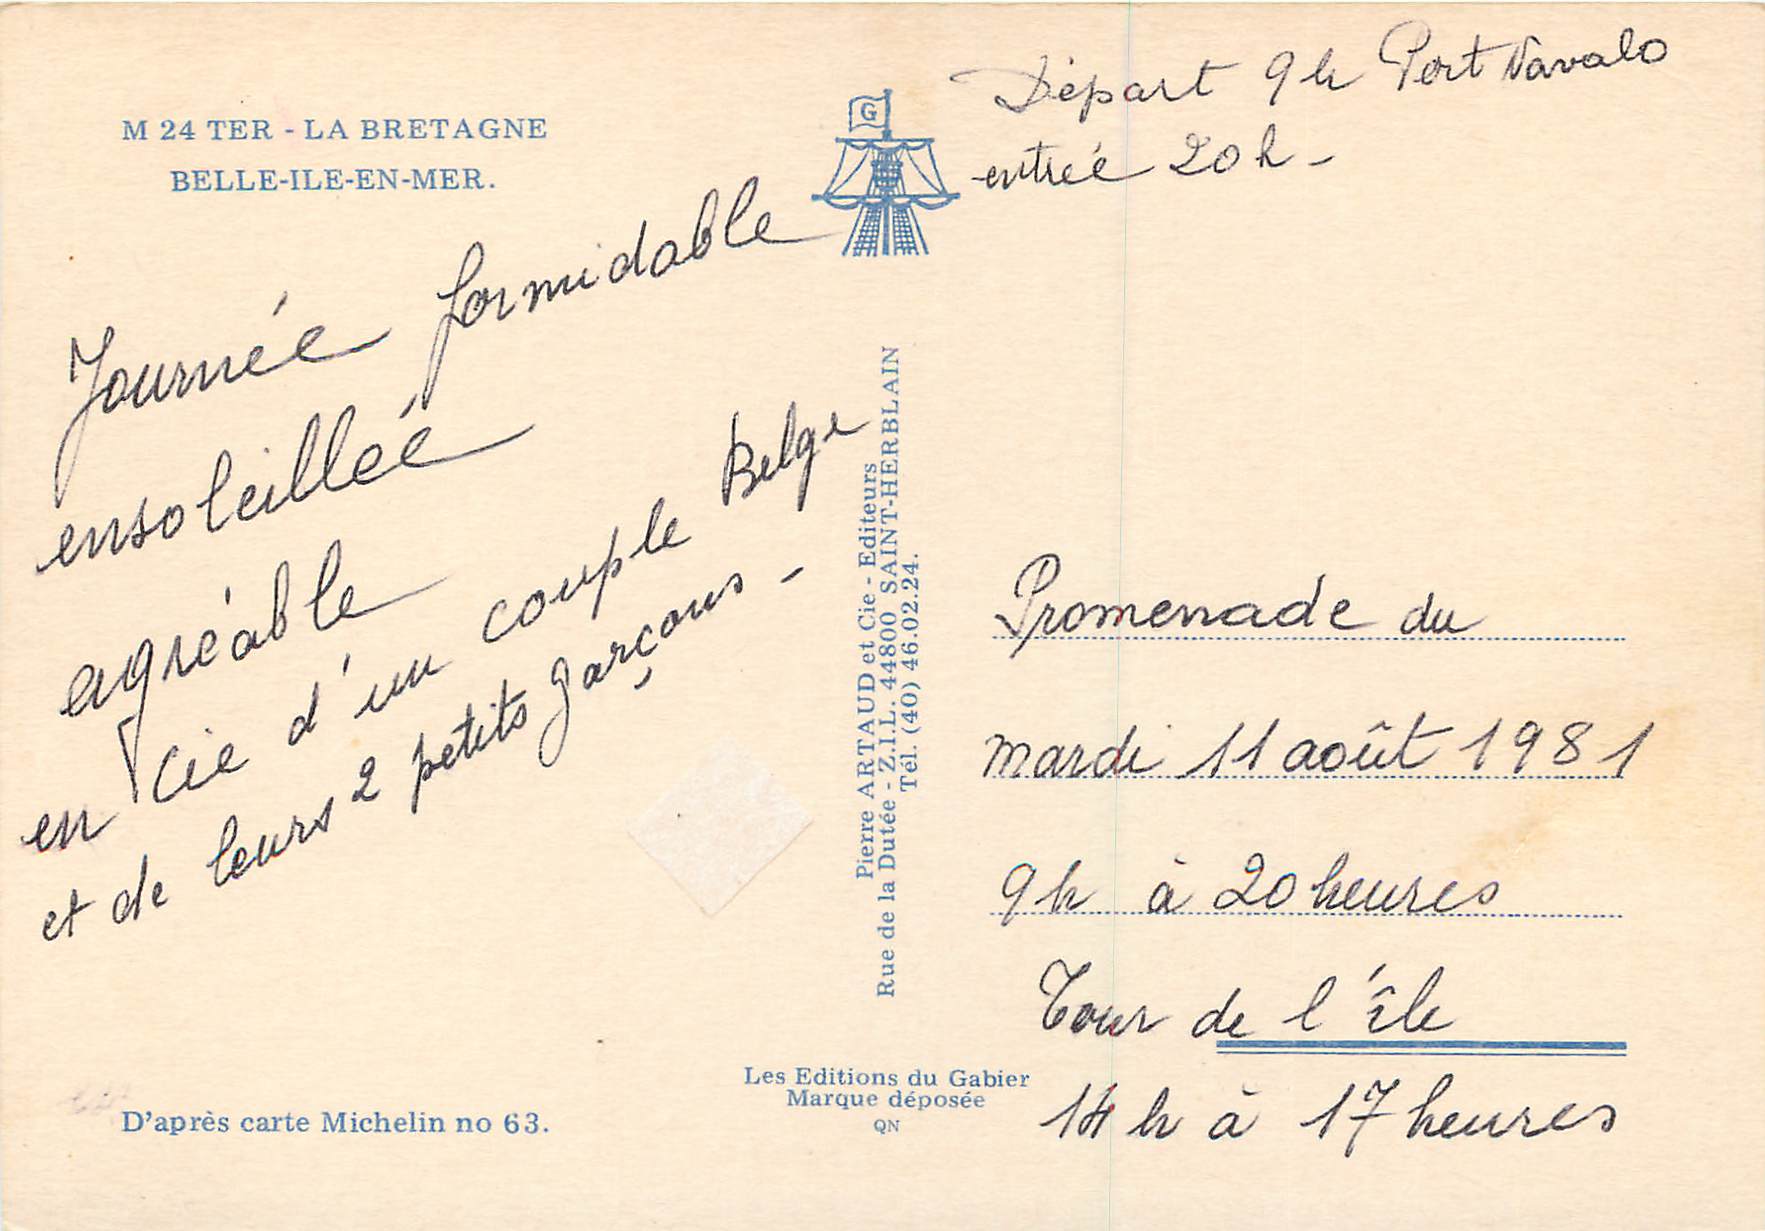 M 24 TER - LA BRETAGNE
BELLE-ILE-EN-MER.
Journée formidable
ensoleillée
agréable
en Cie d'un couple Belge
et de leurs 2 petits garçons -
D'après carte Michelin no 63.
G
Pierre ARTAUD et Cie - Editeurs
Rue de la Dutée - Z.I.L. 44800 SAINT-HERBLAIN
Tél. (40) 46.02.24.
Les Editions du Gabier
Marque déposée
QN
Départ 9h Port Navalo
entrée 20h -
Promenade du
mardi 11 août 1981
9h à 20 heures
Tour de l'île
14 h à 17 heures